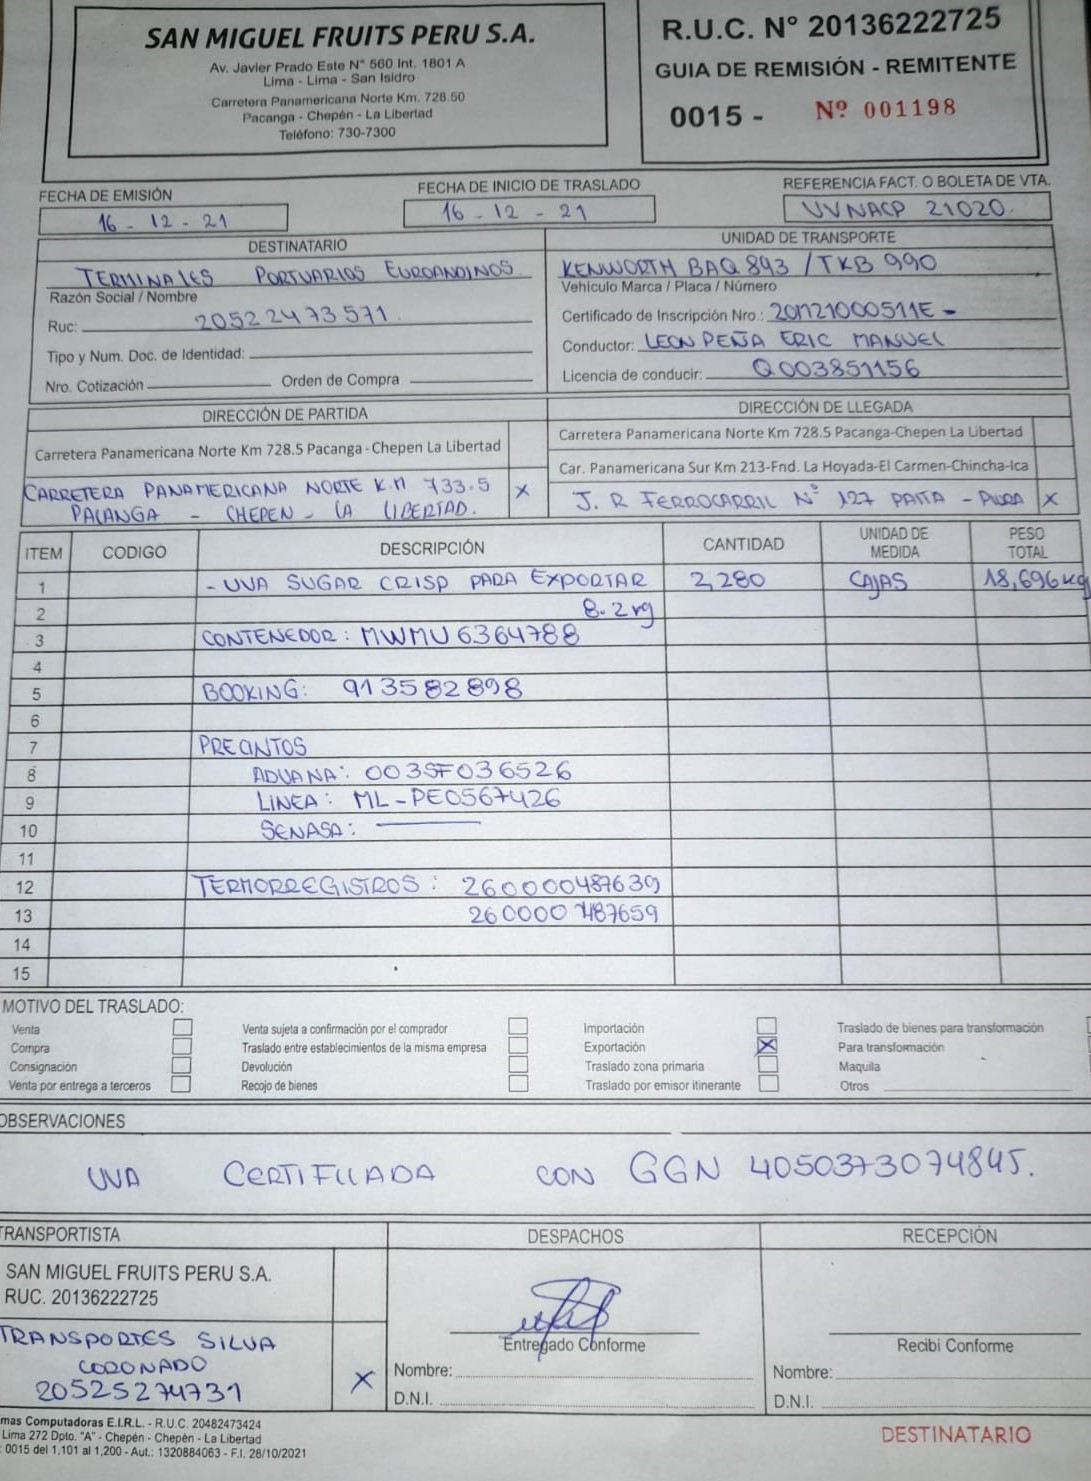 SAN MIGUEL FRUITS PERU S.A.
Av. Javier Prado Este N° 560 Int. 1801 A
Lima - Lima - San Isidro
Carretera Panamericana Norte Km. 728.50
Pacanga - Chepén - La Libertad
Teléfono: 730-7300
R.U.C. N° 20136222725
GUIA DE REMISIÓN - REMITENTE
0015 - Nº 001198
FECHA DE EMISIÓN
16 - 12 - 21
FECHA DE INICIO DE TRASLADO
16 - 12 - 21
REFERENCIA FACT. O BOLETA DE VTA.
UVNACP 21020.
DESTINATARIO
TERMINALES PORTUARIOS EUROANDINOS
Razón Social / Nombre
Ruc: 20522473571.
Tipo y Num. Doc. de Identidad:
Nro. Cotización Orden de Compra
UNIDAD DE TRANSPORTE
KENWORTH BAQ 893 / TKB 990
Vehículo Marca / Placa / Número
Certificado de Inscripción Nro.: 20M21000511E -
Conductor: LEON PEÑA ERIC MANUEL
Licencia de conducir: Q003851156
DIRECCIÓN DE PARTIDA
Carretera Panamericana Norte Km 728.5 Pacanga - Chepen La Libertad
CARRETERA PANAMERICANA NORTE K.M 733.5 X
PACANGA - CHEPEN - LA LIBERTAD.
DIRECCIÓN DE LLEGADA
Carretera Panamericana Norte Km 728.5 Pacanga-Chepen La Libertad
Car. Panamericana Sur Km 213-Fnd. La Hoyada-El Carmen-Chincha-Ica
J. R FERROCARRIL N° 127 PAITA - PIURA X
ITEM CODIGO DESCRIPCIÓN CANTIDAD UNIDAD DE MEDIDA PESO TOTAL
1 - UVA SUGAR CRISP PARA EXPORTAR 2,280 CAJAS 18,696 kg
2 8.2 kg
3 CONTENEDOR: MWMU 6364788
4
5 BOOKING: 913582898
6
7 PRECINTOS
8 ADUANA: 003SF036526
9 LINEA: ML-PE0567426
10 SENASA: ———
11
12 TERMORREGISTROS: 260000487639
13 260000487659
14
15
MOTIVO DEL TRASLADO:
Venta
Compra
Consignación
Venta por entrega a terceros
Venta sujeta a confirmación por el comprador
Traslado entre establecimientos de la misma empresa
Devolución
Recojo de bienes
Importación
Exportación X
Traslado zona primaria
Traslado por emisor itinerante
Traslado de bienes para transformación
Para transformación
Maquila
Otros
OBSERVACIONES
UVA CERTIFICADA CON GGN 4050373074845.
TRANSPORTISTA
SAN MIGUEL FRUITS PERU S.A.
RUC. 20136222725
TRANSPORTES SILVA
CORONADO
20525274731 X
DESPACHOS
Entregado Conforme
Nombre:
D.N.I.
RECEPCIÓN
Recibi Conforme
Nombre:
D.N.I.
mas Computadoras E.I.R.L. - R.U.C. 20482473424
Lima 272 Dpto. "A" - Chepén - Chepén - La Libertad
: 0015 del 1,101 al 1,200 - Aut.: 1320884063 - F.I. 28/10/2021
DESTINATARIO